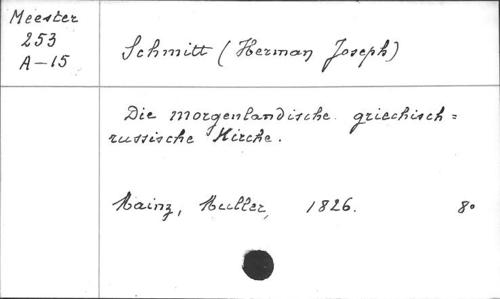 Meester
253
A-15
Schmitt (Herman Joseph)
Die morgenlandische griechisch=
russische Kirche.
Mainz, Muller, 1826. 8°